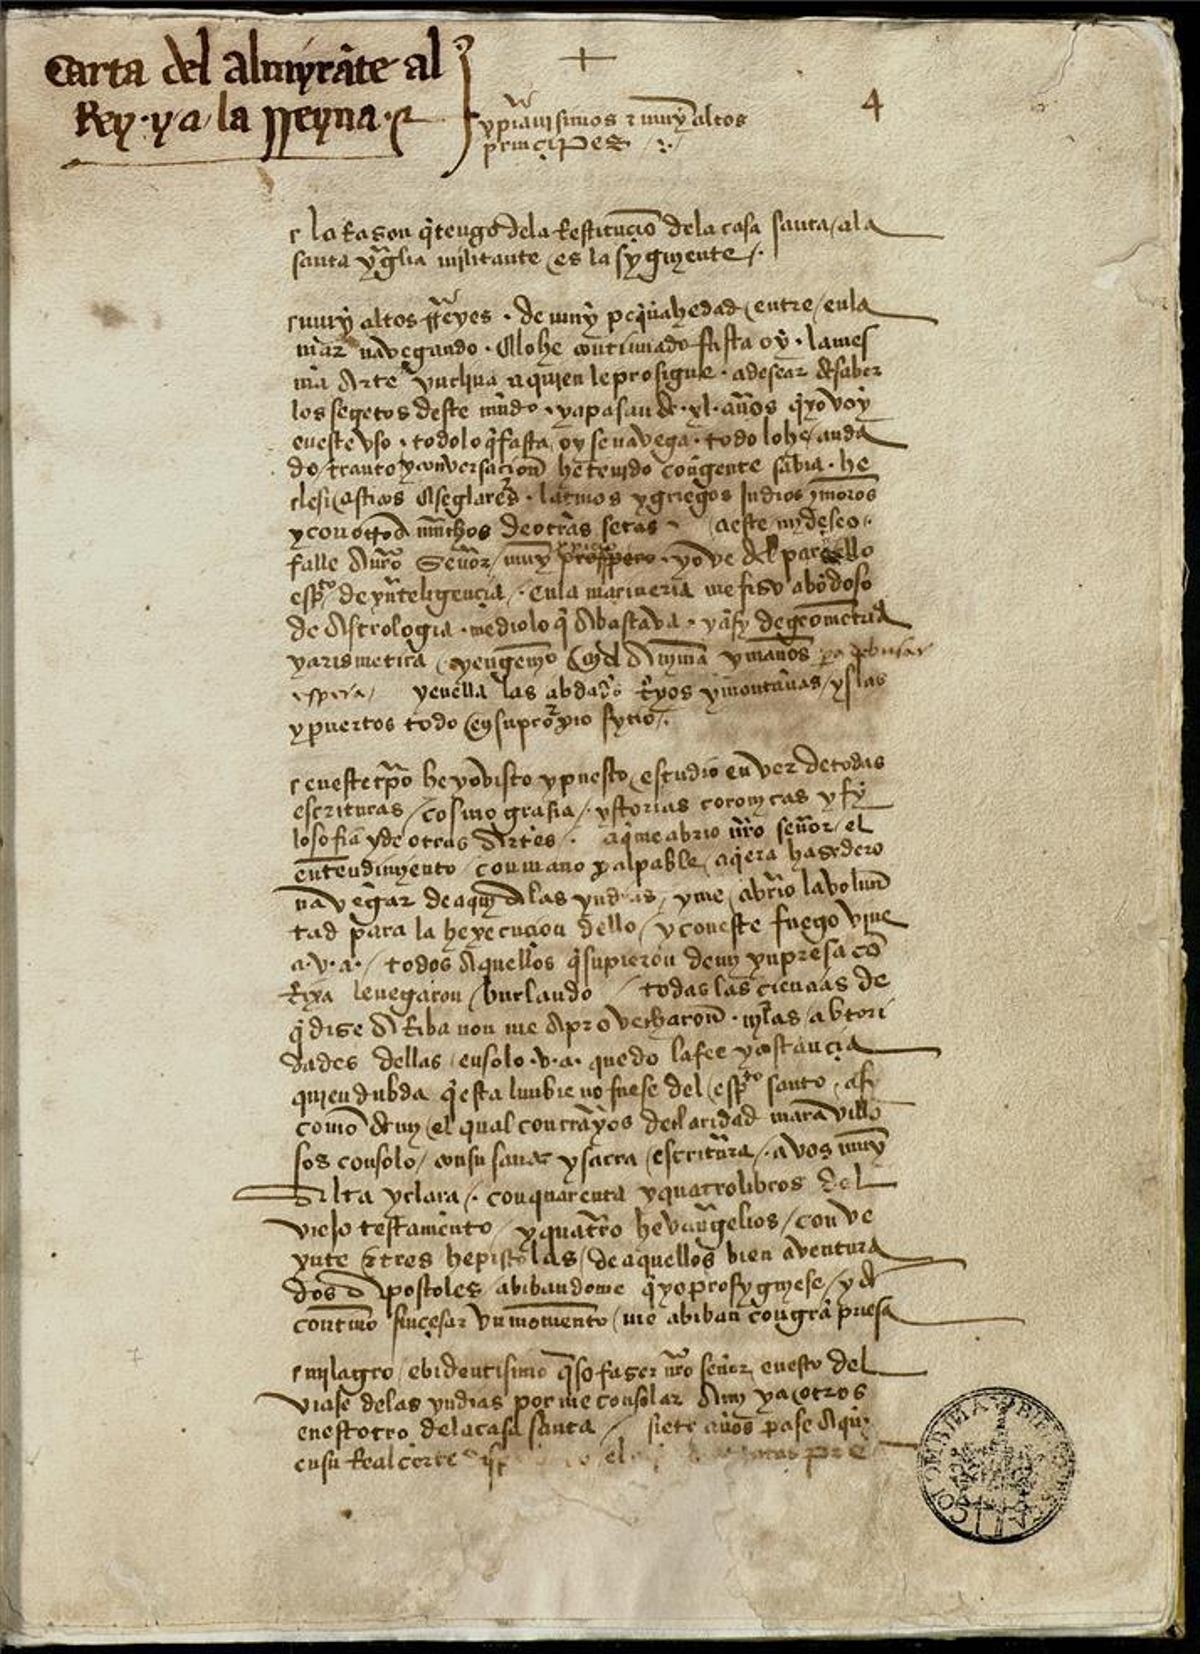 Carta del almyrãte al
Rey · y a la rreyna ·
4
xp̃ianisimos & muy altos
prinçipes
la Rason q̃ tengo de la Restituçiõ de la casa santa / a la
santa yg̃lia militante / es la syguyente /.
muy altos rreyes · de muy peq̃ña hedad / entre / en la
mar navegando · e lo he continuado fasta oy · la mes
ma arte ynclina a quien le prosigue · a desear de saber
los segetos deste mũdo · ya pasan de · xl · años q̃ yo voy
en este vso · todo lo q̃ fasta oy se navega · todo lo he anda
do / trauto y conversaçion he tenido con gente sabia · he
clesiasticos e seglares · latinos y griegos Judios y moros
y con otros muchos de otras setas · a este my deseo ·
falle a nr̃o Señor / muy propiçio · y ove del para ello
esp̃to de ynteligençia /. en la marineria me fiso abõdoso
de Astrologia · me dio lo q̃ abastava · y asy de geometria
y arismetica / y engenyo en el anima y manos pa debusar
espera / y en ella las çibdades Ryos y montañas / yslas
y puertos todo en su propio sytio /.
en este tp̃o he yo visto y puesto / estudio en ver de todas
escrituras / cosmografia / ystorias coronycas y fy
losofia y de otras Artes /. a q̃ me abrio nr̃o señor / el
entendimyento / con mano palpable / a q̃ era hasedero
navegar de aquy a las yndias / y me abrio la volun
tad para la hexecuçion dello / y con este fuego vine
a · v · a · / todos aquellos q̃ supieron de my ynpresa cõ
Rixa le negaron / burlando / todas las çiençias de
q̃ dise aRiba non me aprovecharon · ny las abtori
dades dellas / en solo · v · a · quedo la fee y costançia
quien dubda q̃ esta lunbre no fuese del / esp̃to santo / asy
como de my / el qual con rrayos de claridad maravillo
sos consolo / con su santa y sacra / escritura /. a vos muy
alta y clara /. con quarenta y quatro libros del
viejo testamento / y quatro hevangelios / con ve
ynte & tres hepistolas / de aquellos bien aventura
dos apostoles abibandome q̃ yo prosyguiese / y de
contino sin cesar vn momento / me abiban con grã priesa
milagro / ebidentisimo q̃so faser nr̃o señor / en esto del
viaje de las yndias por me consolar a my y a otros
en estotro de la casa santa / siete años pase aquy
en su Real corte